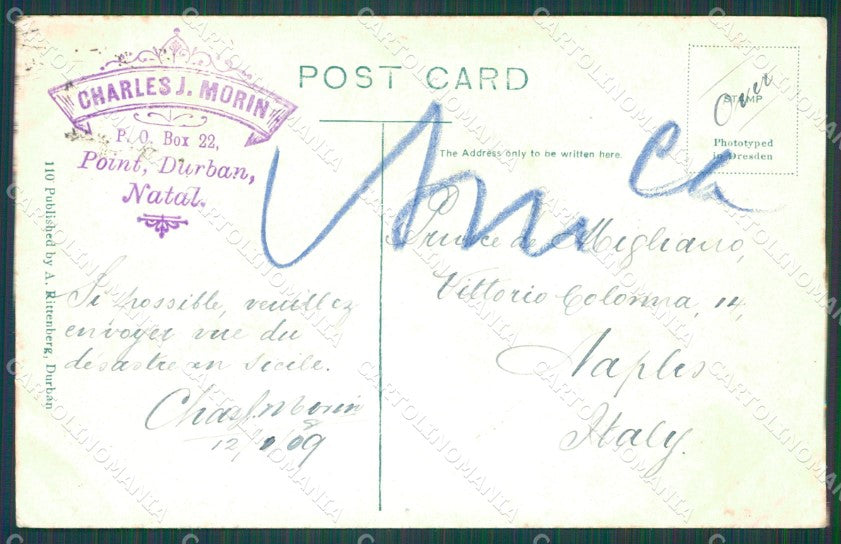 CHARLES J. MORIN
P. O. Box 22,
Point, Durban,
Natal.
POST CARD
The Address only to be written here.
STAMP
Over
Phototyped
in Dresden
110 Published by A. Rittenberg, Durban
Si possible, veuillez
envoyer vue du
désastre en Sicile.
Chas J. Morin
12/1/09
Prince de Migliano,
Vittorio Colonna, 14
Naples
Italy.
CARTOLINOMANIA